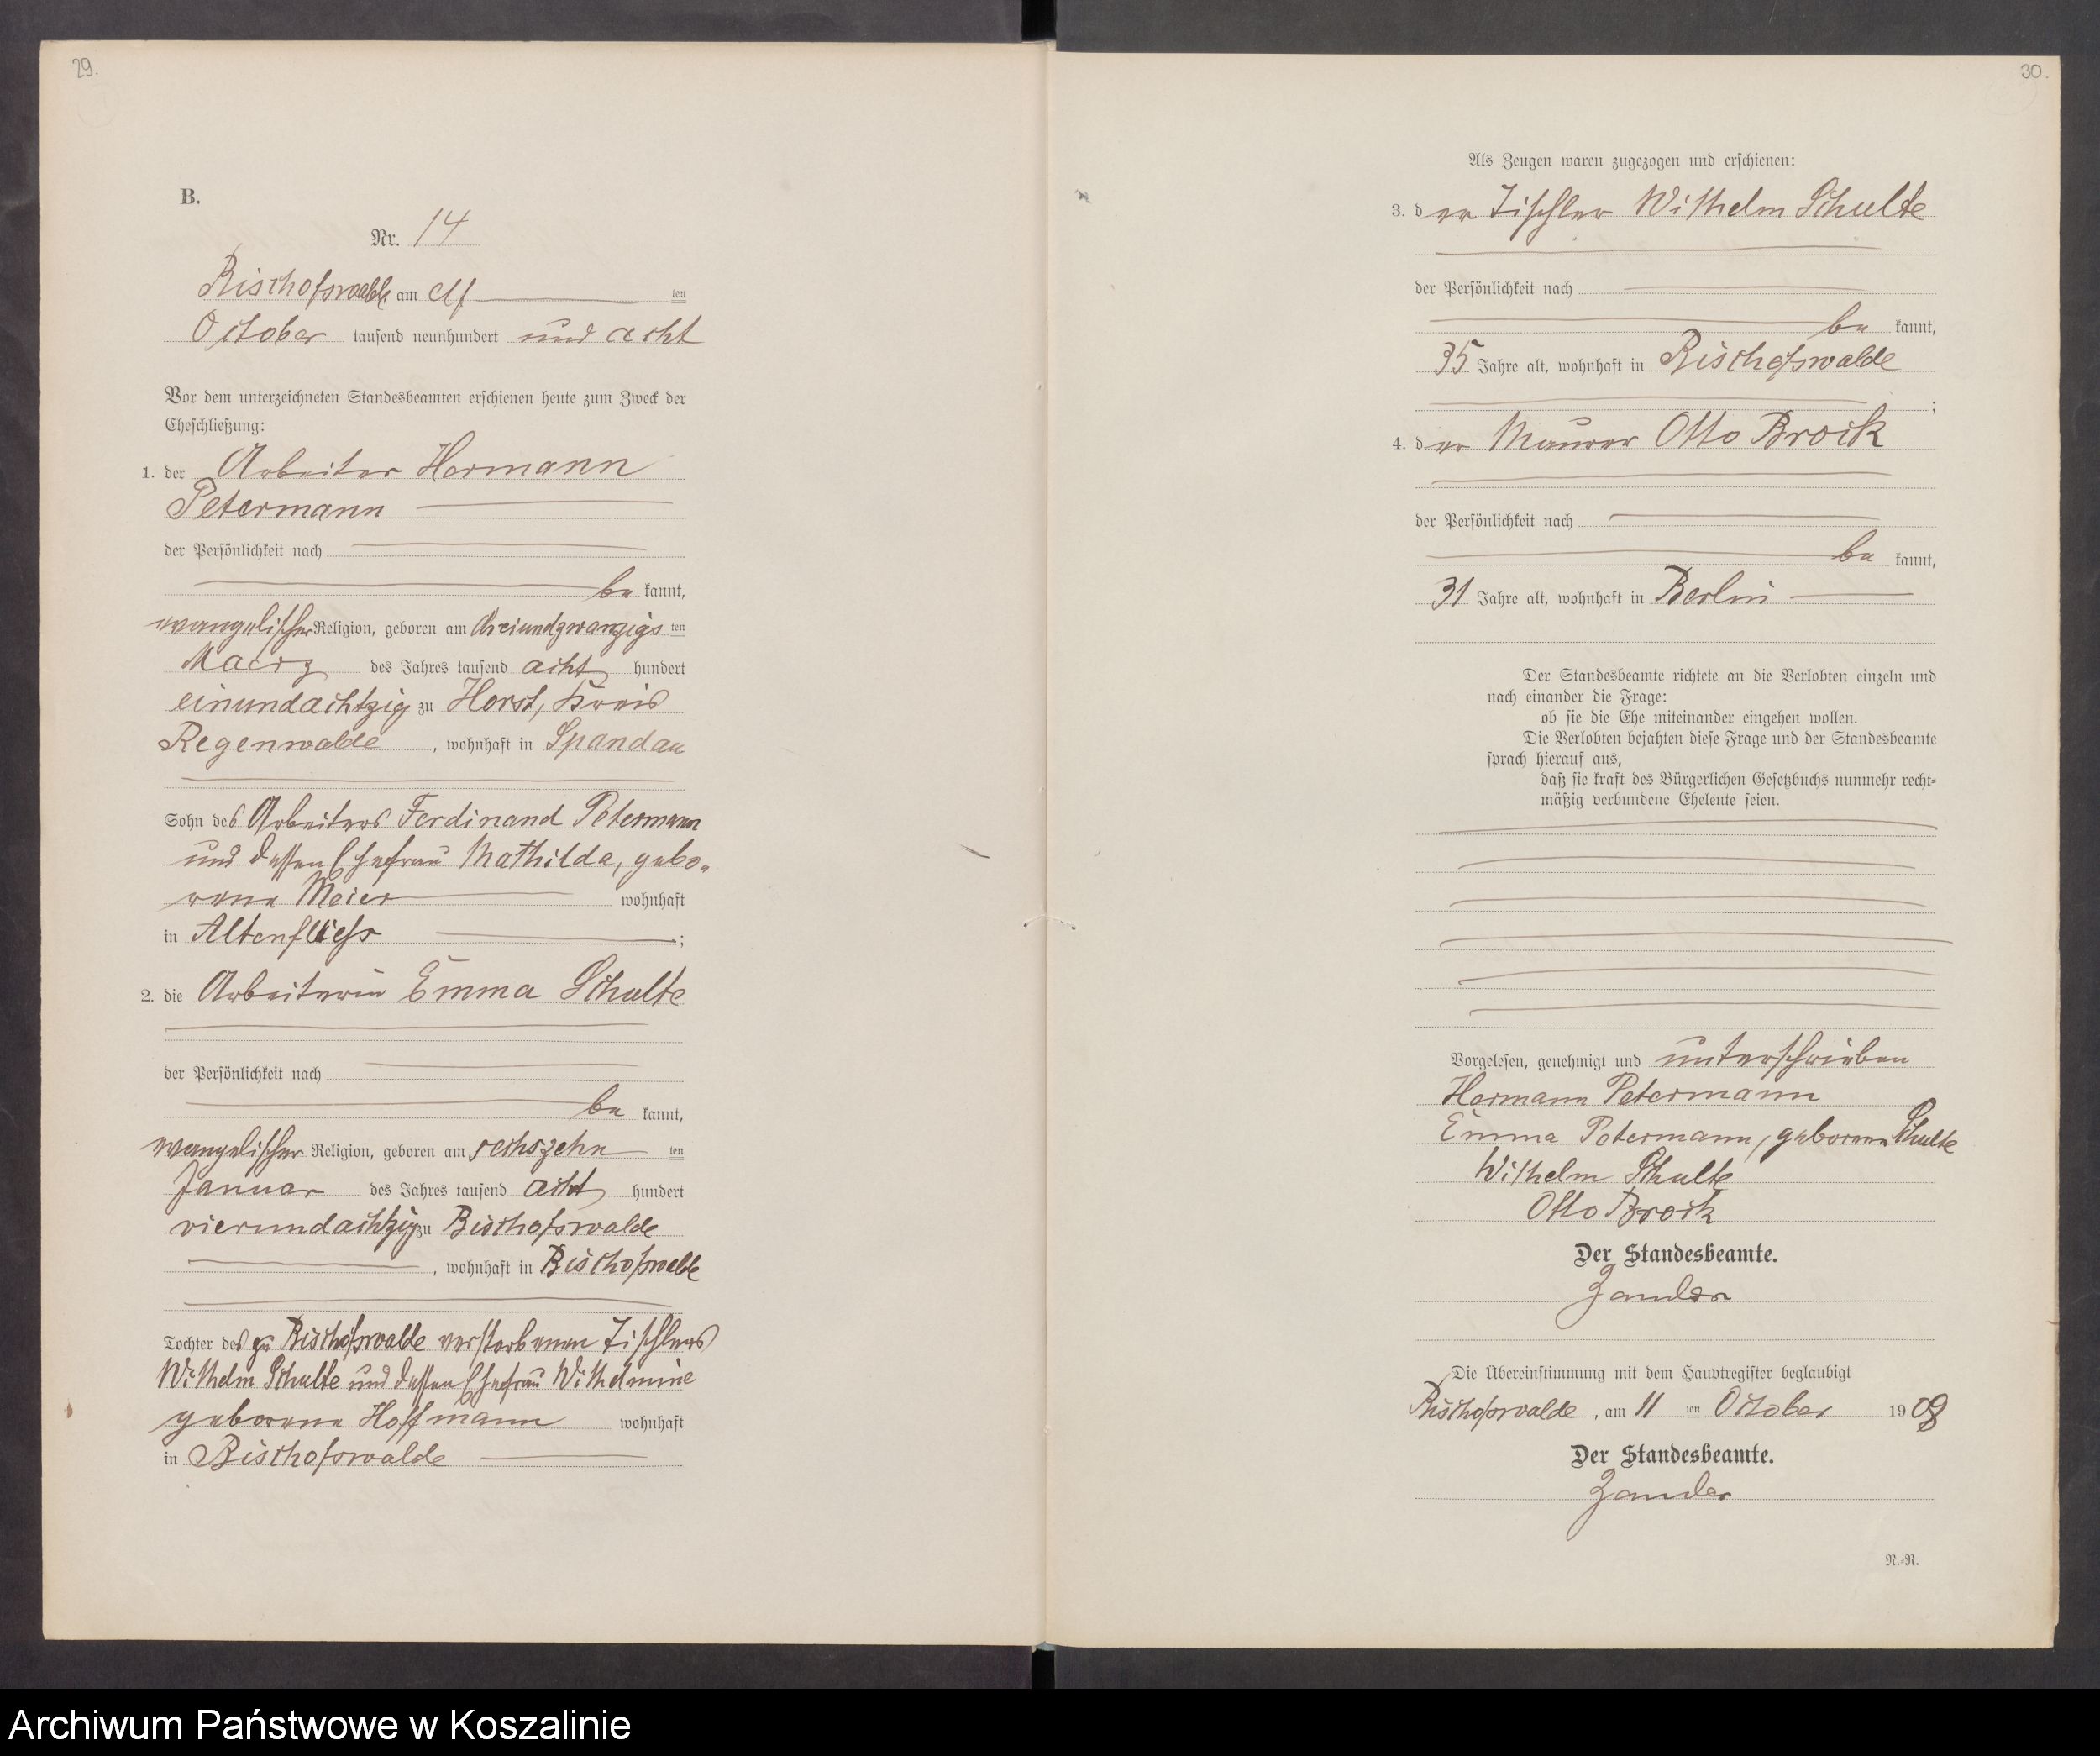 29.
B.
Nr. 14
Bischofswalde am elf ten
October tausend neunhundert und acht
Vor dem unterzeichneten Standesbeamten erschienen heute zum Zweck der
Eheschließung:
1. der Arbeiter Hermann
Petermann
der Persönlichkeit nach
be kannt,
evangelischer Religion, geboren am dreiundzwanzigs ten
Maerz des Jahres tausend acht hundert
einundachtzig zu Horst, Kreis
Regenwalde, wohnhaft in Spandau
Sohn des Arbeiters Ferdinand Petermann
und dessen Ehefrau Mathilda, gebo-
rene Meier wohnhaft
in Altenfliess ;
2. die Arbeiterin Emma Schulte
der Persönlichkeit nach
be kannt,
evangelischer Religion, geboren am sechszehn ten
Januar des Jahres tausend acht hundert
vierundachtzig zu Bischofswalde
, wohnhaft in Bischofswalde
Tochter des zu Bischofswalde verstorbenen Tischlers
Wilhelm Schulte und dessen Ehefrau Wilhelmine
geborene Hoffmann wohnhaft
in Bischofswalde
30.
Als Zeugen waren zugezogen und erschienen:
3. der Tischler Wilhelm Schulte
der Persönlichkeit nach
be kannt,
35 Jahre alt, wohnhaft in Bischofswalde
;
4. der Maurer Otto Brock
der Persönlichkeit nach
be kannt,
31 Jahre alt, wohnhaft in Berlin
Der Standesbeamte richtete an die Verlobten einzeln und
nach einander die Frage:
ob sie die Ehe miteinander eingehen wollen.
Die Verlobten bejahten diese Frage und der Standesbeamte
sprach hierauf aus,
daß sie kraft des Bürgerlichen Gesetzbuchs nunmehr recht-
mäßig verbundene Eheleute seien.
Vorgelesen, genehmigt und unterschrieben
Hermann Petermann
Emma Petermann, geborene Schulte
Wilhelm Schulte
Otto Brock
Der Standesbeamte.
Zander
Die Übereinstimmung mit dem Hauptregister beglaubigt
Bischofswalde, am 11 ten October 1908
Der Standesbeamte.
Zander
N.-R.
Archiwum Państwowe w Koszalinie